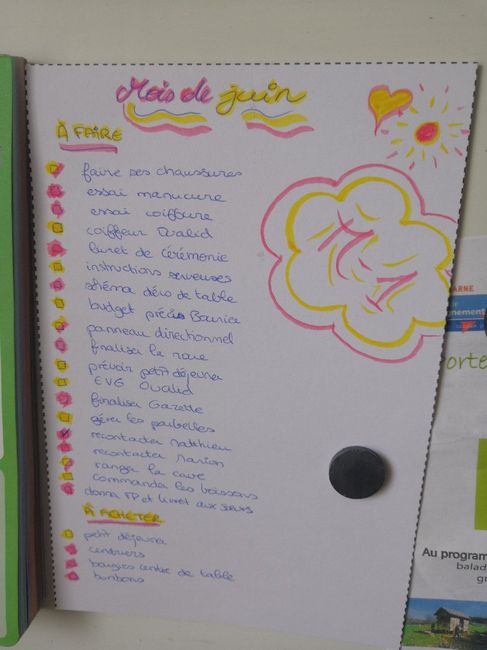 Mois de juin
À FAIRE
faire ses chaussures
essai manucure
essai coiffure
coiffeur Oualid
livret de cérémonie
instructions serveuses
schéma déco de table
budget précis Bounice
panneau directionnel
finaliser la roue
prévoir petit déjeuner
EVG Oualid
finaliser Gazette
gérer les poubelles
recontacter Matthieu
recontacter Marion
ranger la cave
commander les boissons
donner FP et livret aux sœurs
À ACHETER
petit déjeuner
cendriers
bougies centre de table
bonbons
ARNE
gnement
orte
Au program
balad